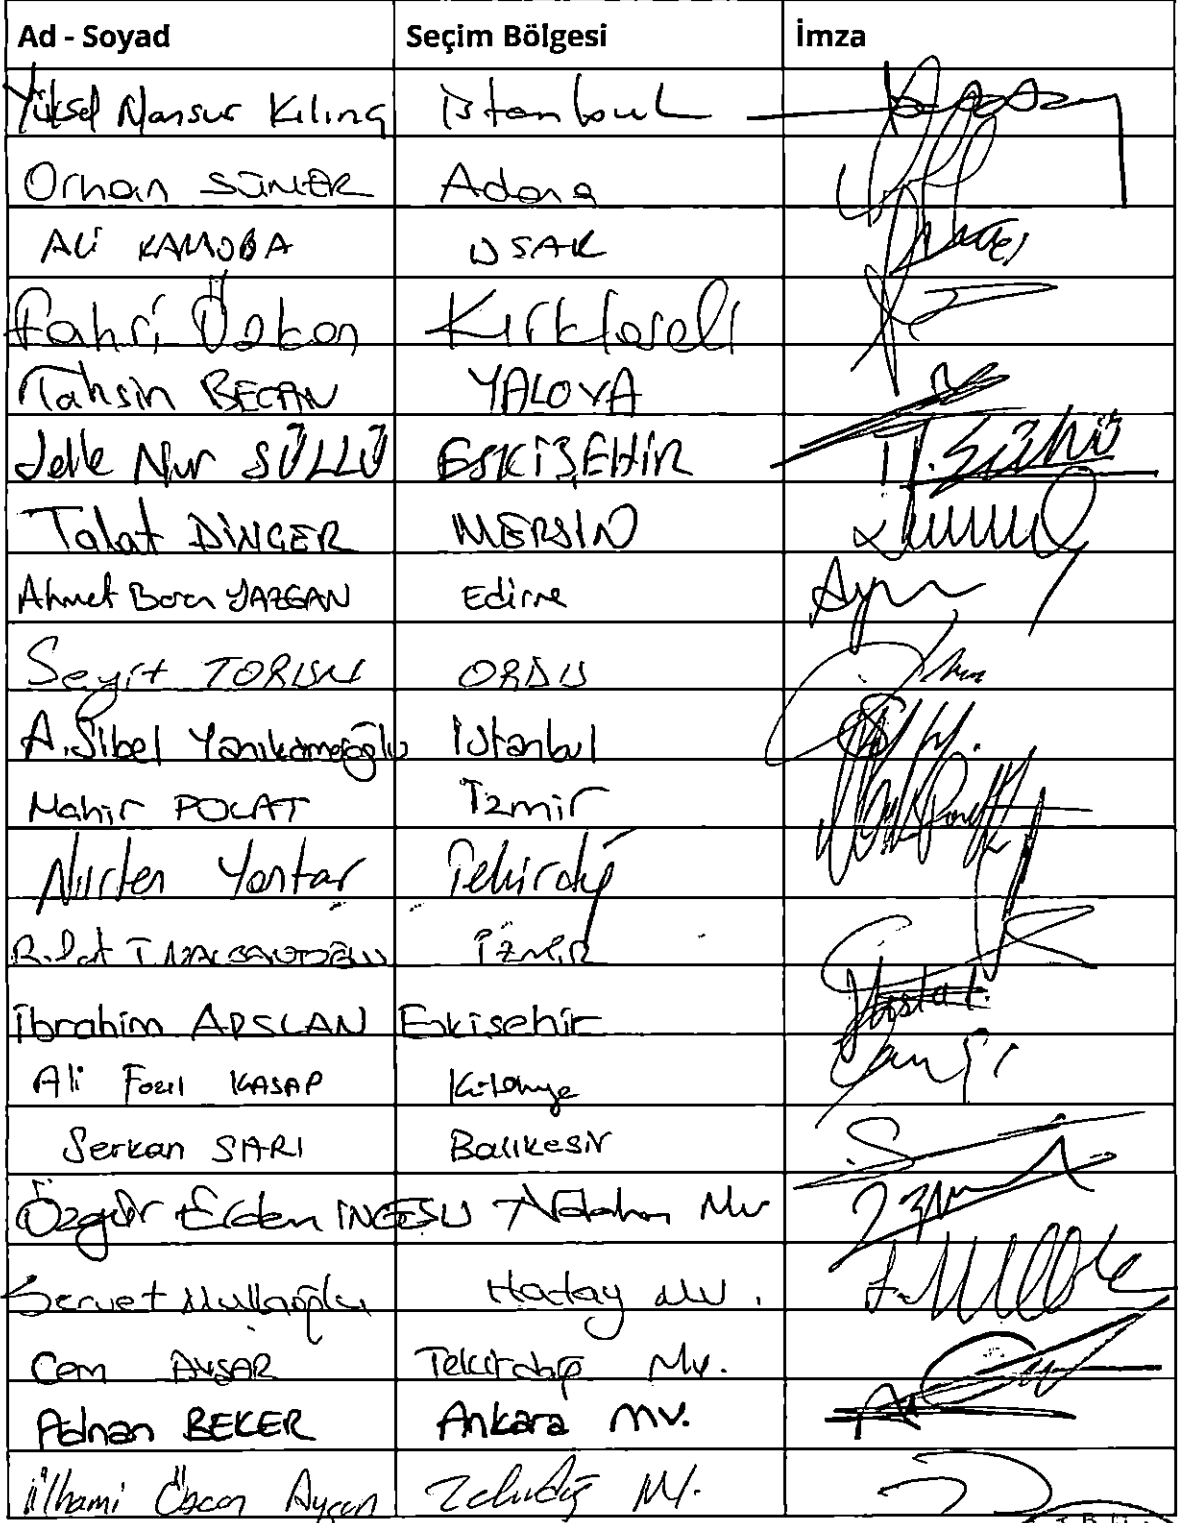 Ad - Soyad Seçim Bölgesi İmza
Yüksel Mansur Kılınç İstanbul
Orhan SÜMER Adana
Ali KARAOBA UŞAK
Fahri Özkan Kırklareli
Tahsin BECAN YALOVA
Jale Nur SÜLLÜ ESKİŞEHİR
Talat DİNÇER MERSİN
Ahmet Baran YAZGAN Edirne
Seyit TORUN ORDU
A. Sibel Yanıkömeroğlu İstanbul
Mahir POLAT İzmir
Nurten Yontar Tekirdağ
Rıfat T. NALBANTOĞLU İZMİR
İbrahim ARSLAN Eskişehir
Ali Fazıl KASAP Kütahya
Serkan SARI Balıkesir
Özgür Erdem İNCESU Ardahan Mv.
Servet Mullaoğlu Hatay Mv.
Cem AVŞAR Tekirdağ Mv.
Adnan BEKER Ankara MV.
İlhami Özcan Aygun Tekirdağ Mv.